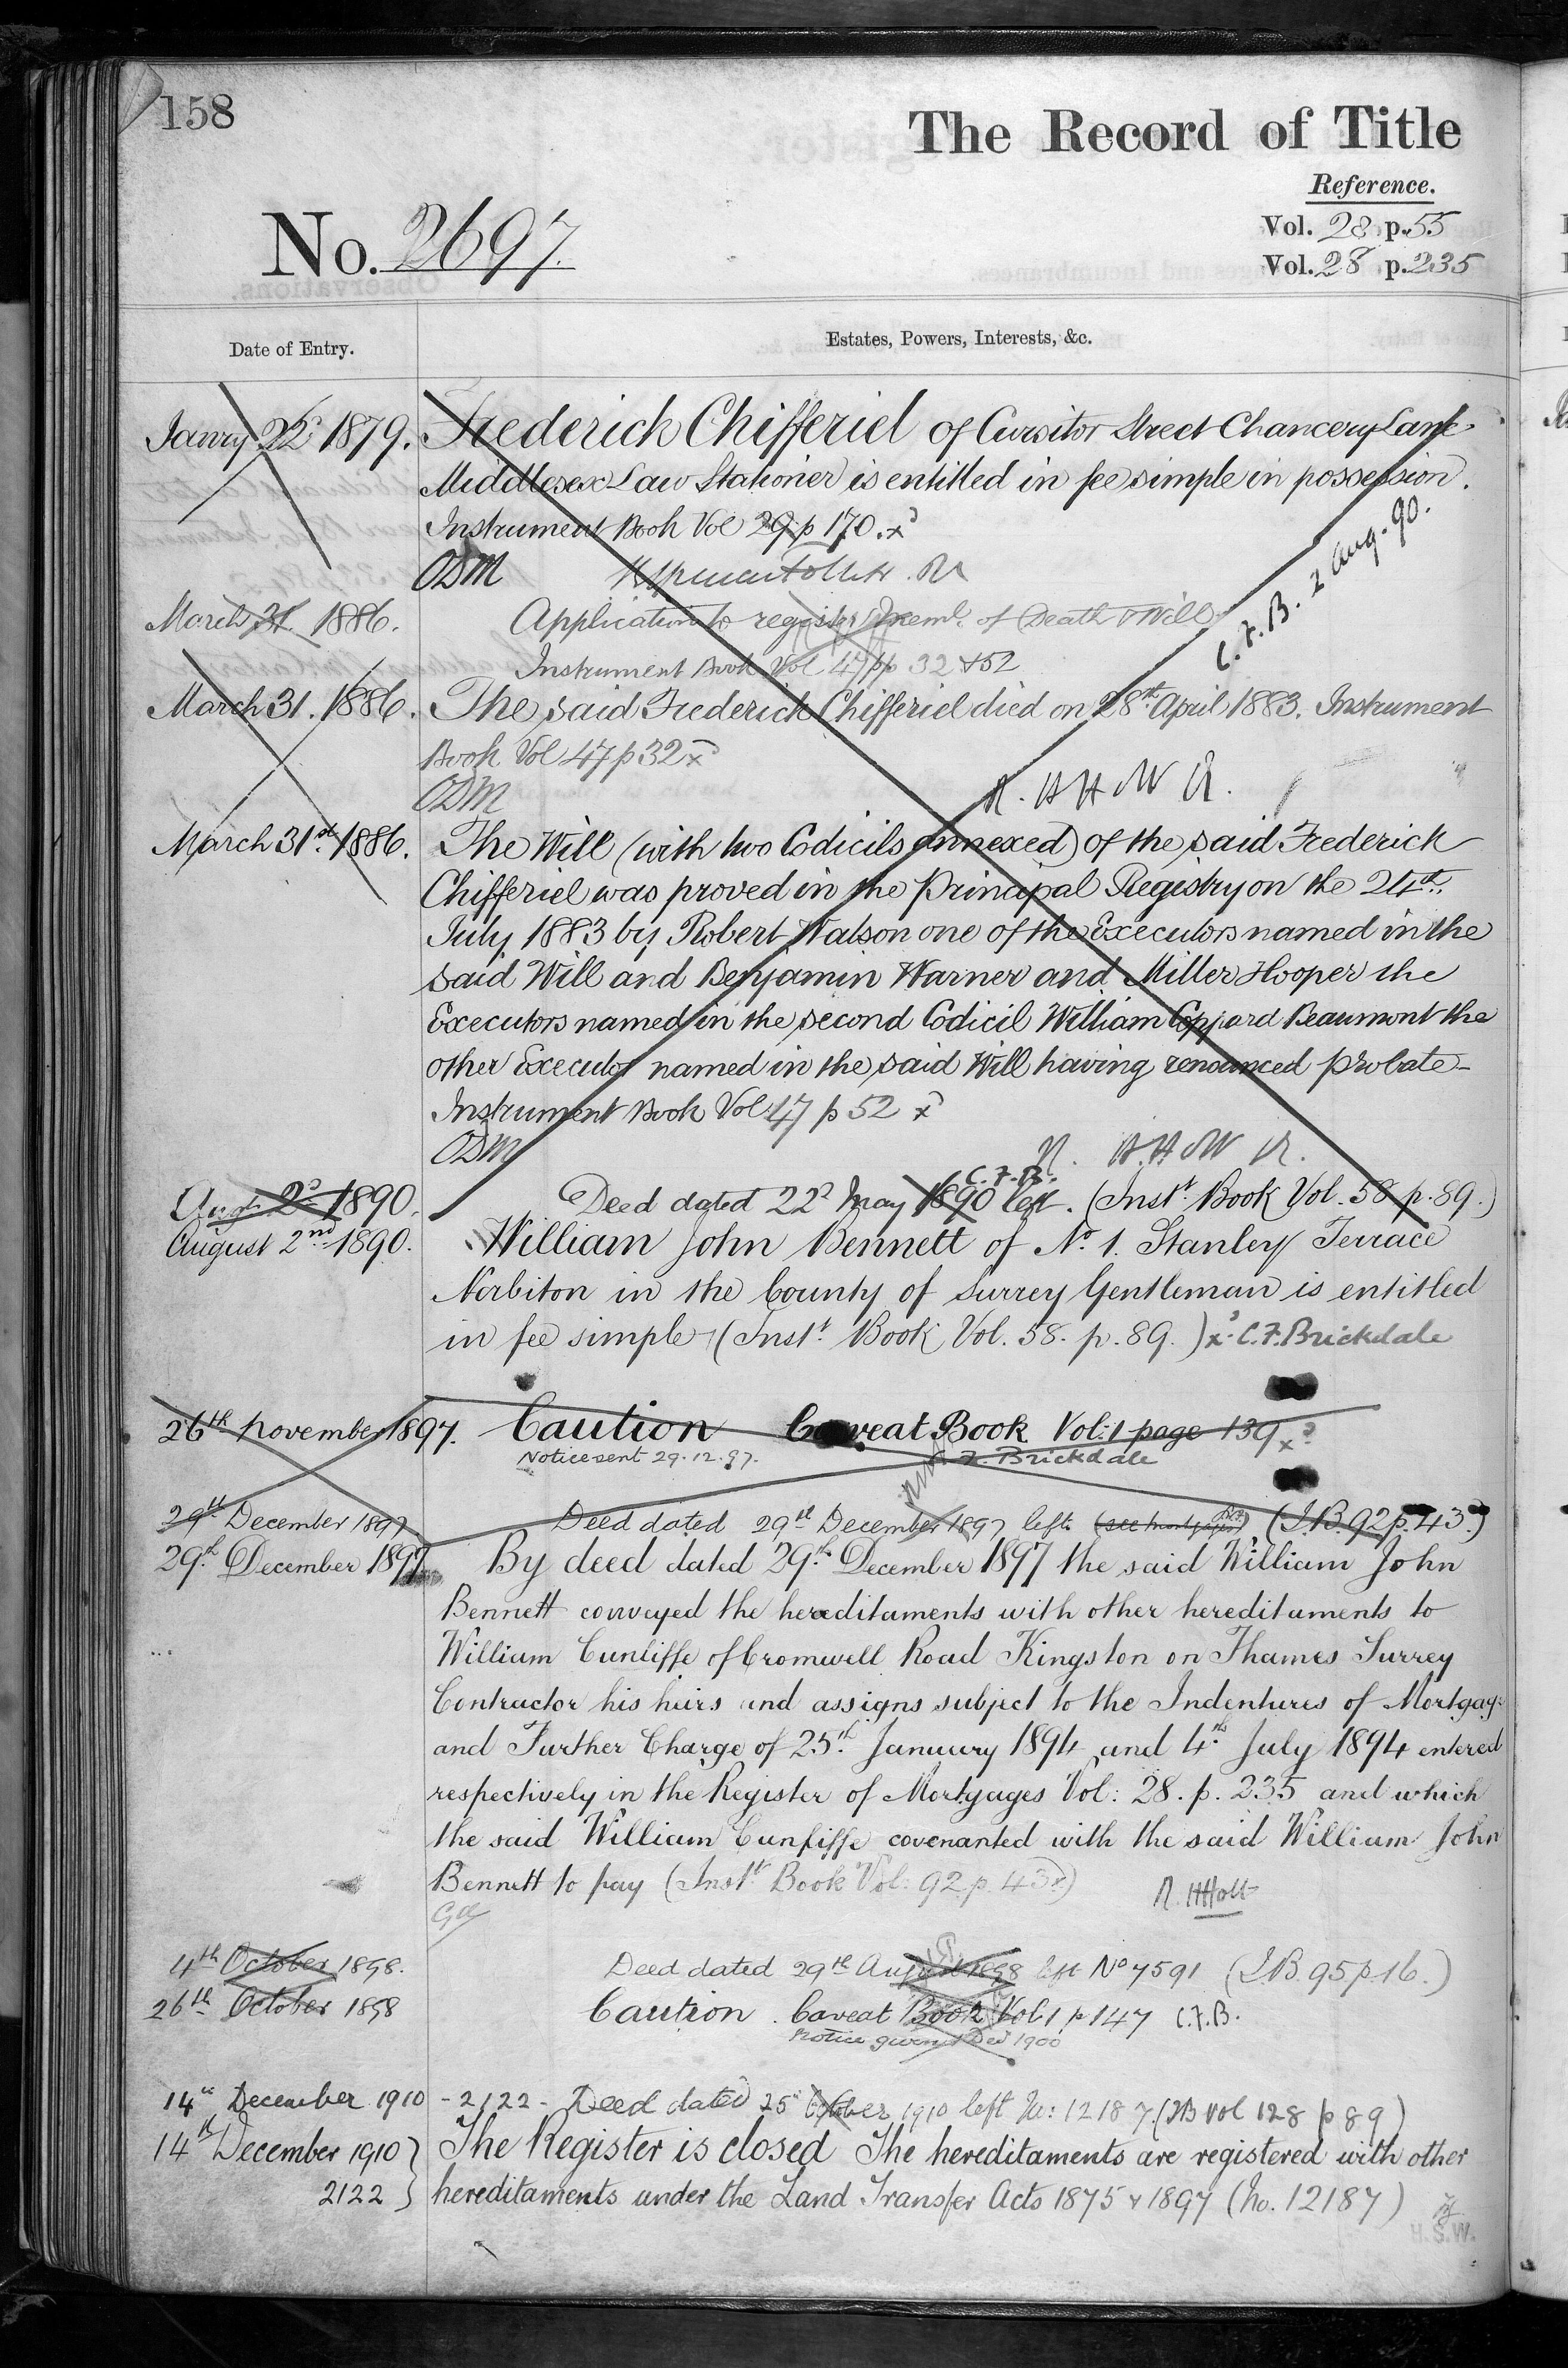 158
The Record of Title
Reference.
Vol. 28 p. 55
No. 2697.
Vol. 28 p. 235
Date of Entry.
Estates, Powers, Interests, &c.
Janry 22d 1879. Frederick Chifferiel of Cursitor Street Chancery Lane
Middlesex Law Stationer is entitled in fee simple in possession.
Instrument Book Vol 29 p 170. x
ODM
C. F. B. 2 Aug. 90.
March 31. 1886. Application to register Meml. of Death & Will
Instrument Book Vol 47 pp 32 & 52
March 31. 1886. The said Frederick Chifferiel died on 28th April 1883. Instrument
Book Vol 47 p 32 x
ODM R. H H W R.
March 31st 1886. The Will (with two Codicils annexed) of the said Frederick
Chifferiel was proved in the Principal Registry on the 24th
July 1883 by Robert Watson one of the Executors named in the
said Will and Benjamin Warner and Miller Hooper the
Executors named in the second Codicil William Coppard Beaumont the
other Executor named in the said Will having renounced probate
Instrument Book Vol 47 p 52 x
ODM R. H.H W R.
C. F. B.
Aug. 2d 1890. Deed dated 22d May 1890 left. (Inst. Book Vol. 58 p. 89.)
August 2nd 1890. William John Bennett of No. 1. Stanley Terrace
Norbiton in the County of Surrey Gentleman is entitled
in fee simple (Inst. Book Vol. 58. p. 89.) x C. F. Brickdale
26th November 1897. Caution Caveat Book Vol: 1 page 139 x
Notice sent 29.12.97. F. Brickdale
29th December 1897 Deed dated 29th December 1897 left (see mortgages) (I.B. 92 p. 43.)
29th December 1897 By deed dated 29th December 1897 the said William John
Bennett conveyed the hereditaments with other hereditaments to
William Cunliffe of Cromwell Road Kingston on Thames Surrey
Contractor his heirs and assigns subject to the Indentures of Mortgage
and Further Charge of 25th January 1894 and 4th July 1894 entered
respectively in the Register of Mortgages Vol: 28. p. 235 and which
the said William Cunliffe covenanted with the said William John
Bennett to pay (Inst. Book Vol: 92 p. 43 x)
R. H Holt
4th October 1898. Deed dated 29th August 1898 left No 7591 (I.B. 95 p. 16.)
26th October 1898 Caution Caveat Book Vol. 1 p 147 C.F.B.
Notice given Dec 1900
14th December 1910 - 2122 - Deed dated 25th October 1910 left No: 12187. (IB vol 128 p 89)
14th December 1910 } The Register is closed The hereditaments are registered with other
2122 } hereditaments under the Land Transfer Acts 1875 & 1897 (No. 12187)
H.S.W.